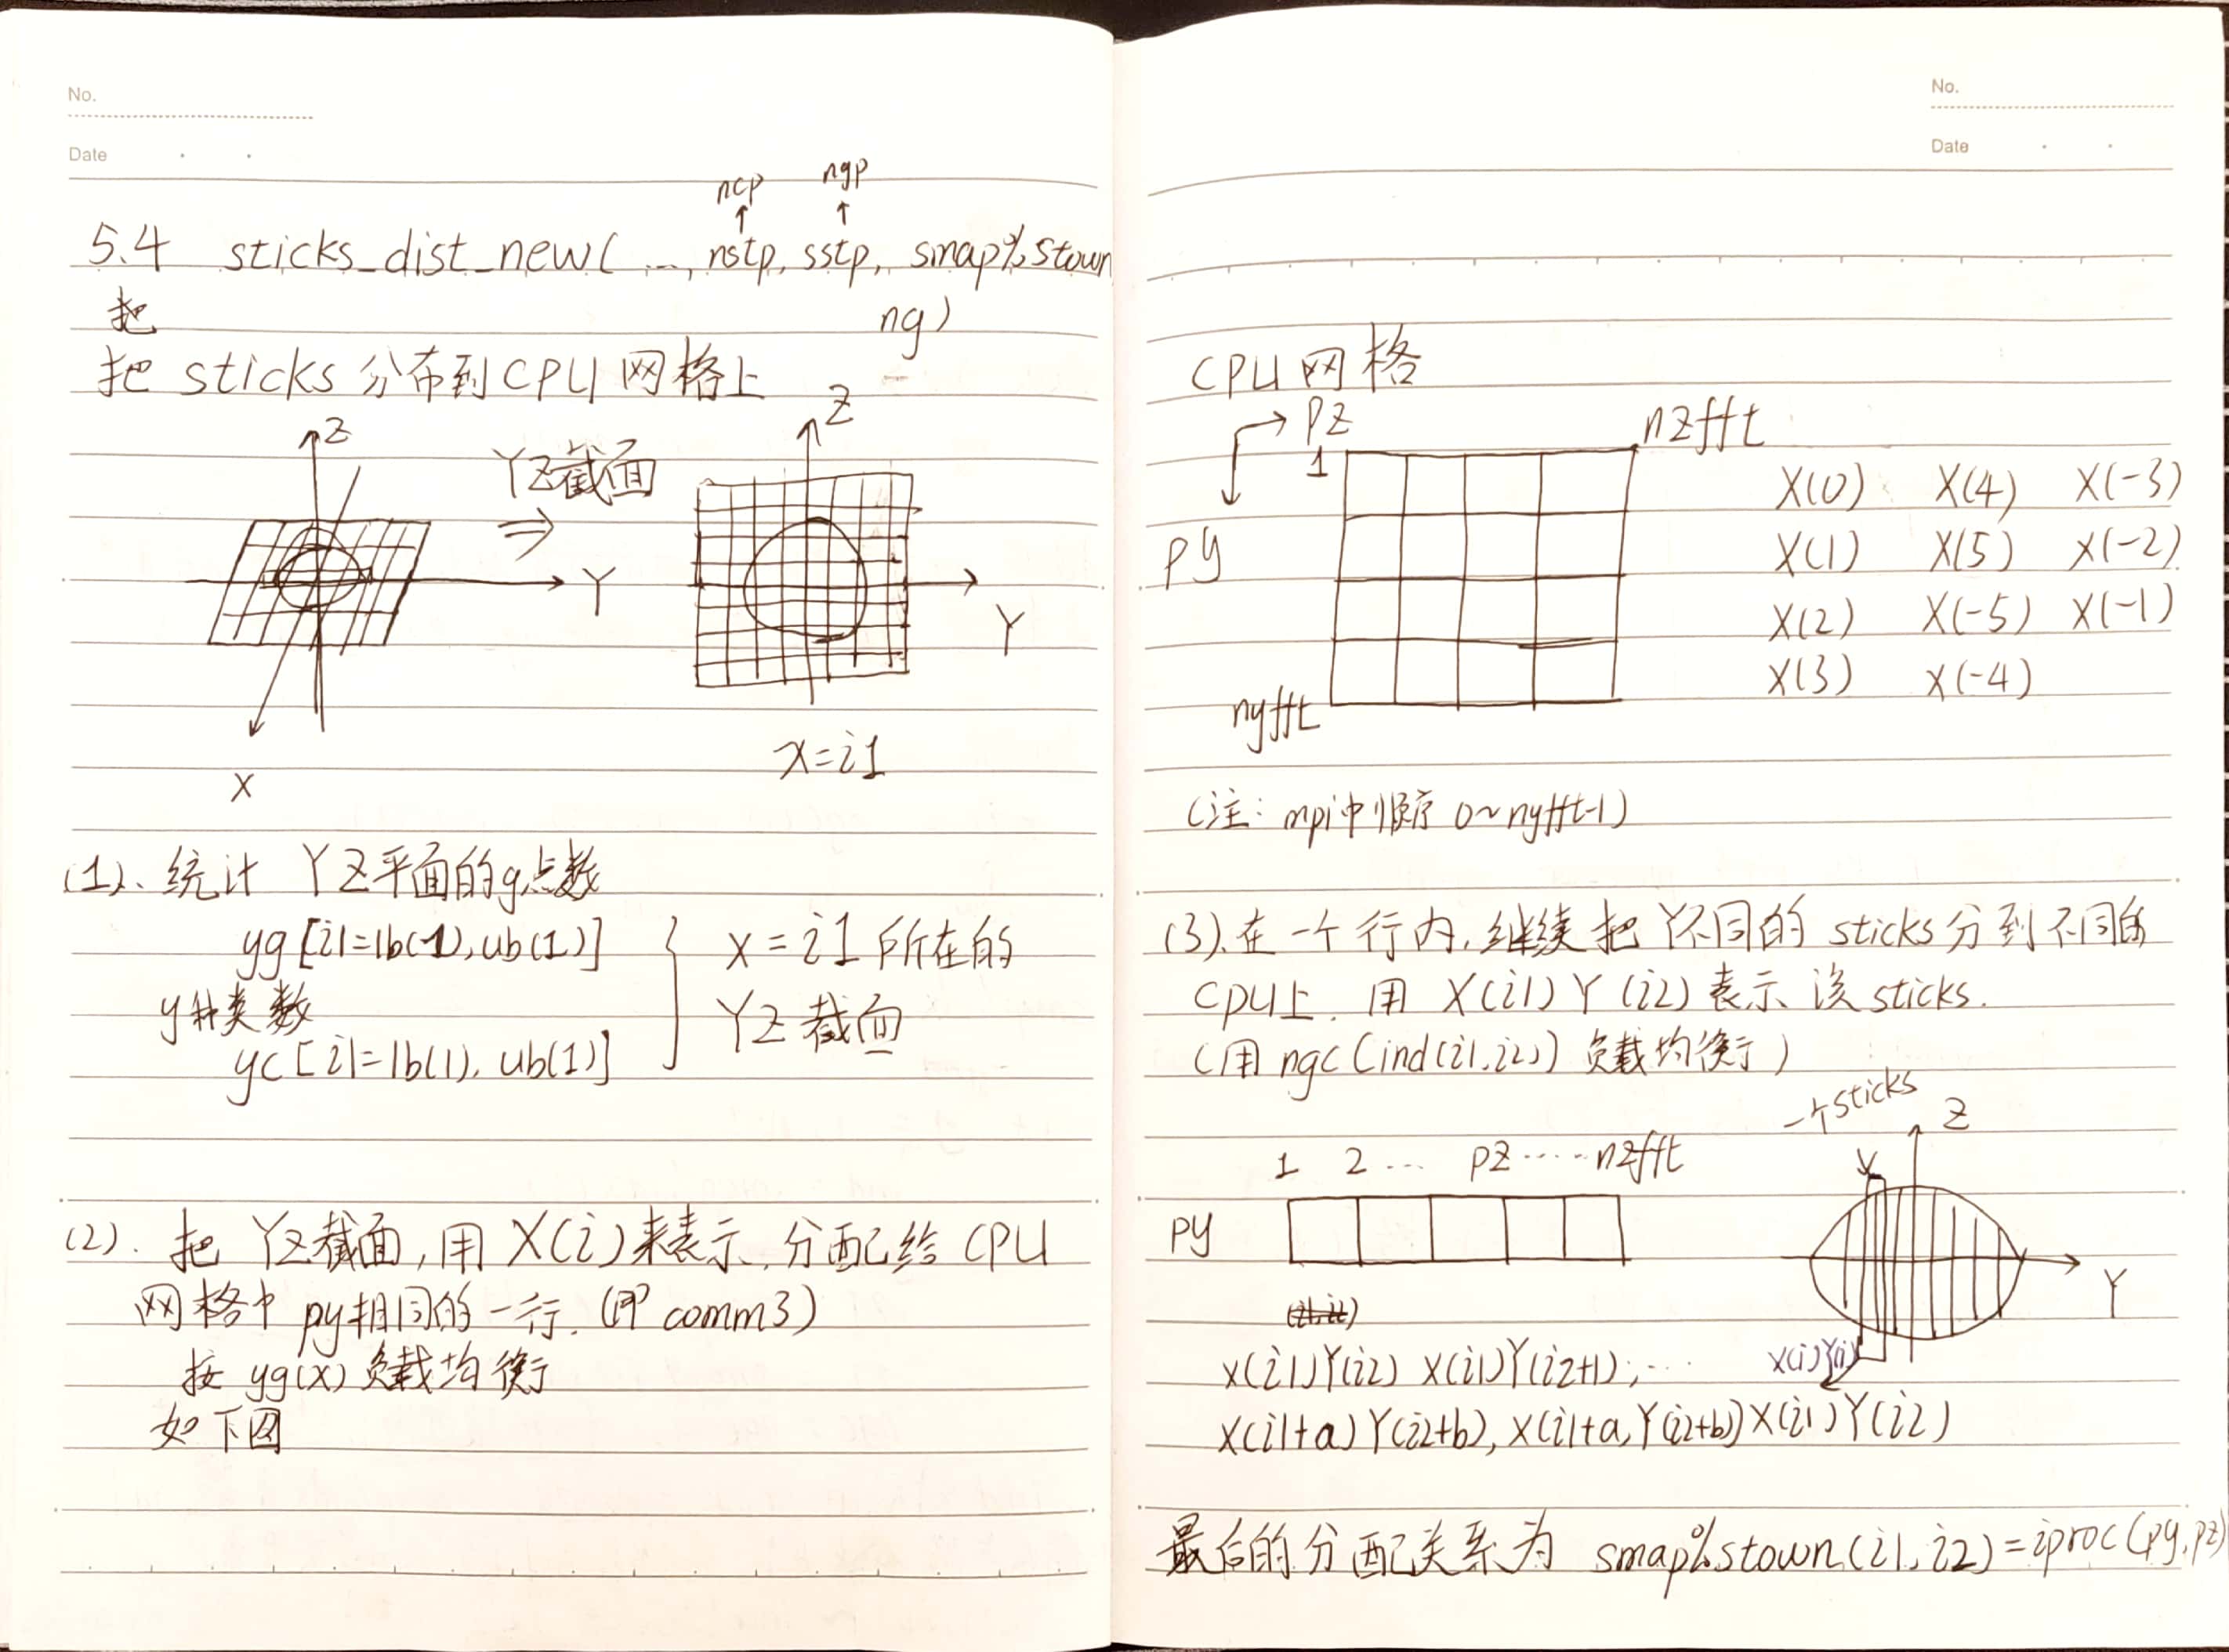 No.
Date
ncp ngp
↑ ↑
5.4 sticks_dist_new( ..., nstp, sstp, smap%stown
把 ng)
把 sticks 分布到CPU网格上
Z
YZ截面
⇒
Y
X
Z
Y
x=i1
(1)、统计 YZ平面的g点数
yg [i1=lb(1),ub(1)]
y种类数
yc [i1=lb(1), ub(1)]
x = i1 所在的
YZ 截面
(2). 把 YZ截面,用 X(i)来表示,分配给 CPU
网格中 py相同的一行. (即 comm3)
按 yg(x) 负载均衡
如下图
No.
Date
CPU 网格
pz
1 nzfft
py
nyfft
X(0) X(4) X(-3)
X(1) X(5) X(-2)
X(2) X(-5) X(-1)
X(3) X(-4)
(注: mpi中顺序 0~nyfft-1)
(3).在一个行内,继续把Y不同的 sticks 分到不同的
CPU上. 用 X(i1)Y(i2)表示该 sticks.
(用 ngc(ind(i1,i2)) 负载均衡)
一个sticks
Z
1 2 ... pz ····· nzfft
py
Y
X(i)Y(i)
X(i1)Y(i2) X(i1)Y(i2+1), ...
X(i1+a)Y(i2+b), X(i1+a,Y(i2+b)) X(i1)Y(i2)
最后的分配关系为 smap%stown(i1,i2)=iproc(py,pz)